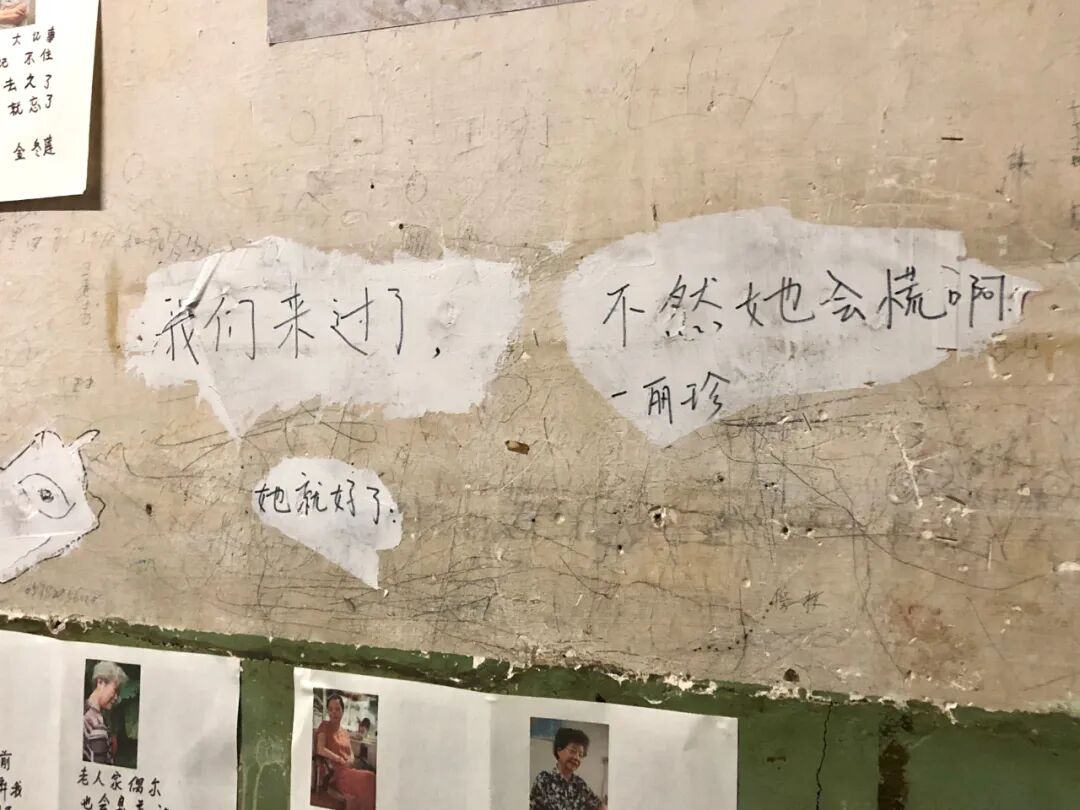 大记事
记不住
去久了
就忘了
金冬莲
我们来过了,
不然她会慌啊!
一丽珍
她就好了.
老人家偶尔
前